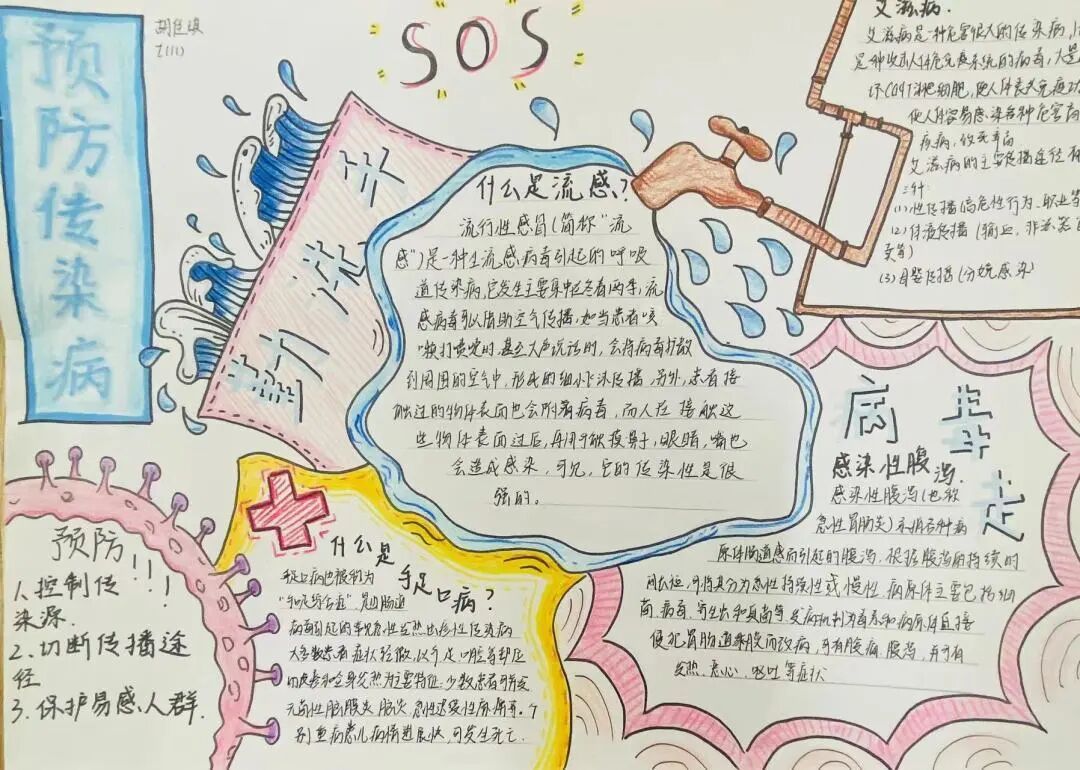 预防传染病
SOS
勤洗手
什么是流感？
流行性感冒（简称“流
感”）是一种由流感病毒引起的呼吸
道传染病，它发生主要集中在冬春两季，流
感病毒可以借助空气传播，如当患者咳
嗽打喷嚏时，甚至大声说话时，会将病毒扩散
到周围的空气中，形成的细小飞沫传播，另外，患者接
触过的物体表面也会附着病毒，而人在接触这
些物体表面过后，再用手触摸鼻子，眼睛，嘴也
会造成感染，可见，它的传染性是很
强的。
艾滋病.
艾滋病是一种危害很大的传染病，
是种攻击人体免疫系统的病毒，大量
坏CD4T淋巴细胞，使人体丧失免疫功
使人体容易感染各种危害
疾病，致死率高
艾滋病的主要传播途径有
三种：
(1)性传播(高危性行为、职业等
(2)体液传播（输血，非法
(3)母婴传播（分娩感染）
预防!!!
1.控制传
染源.
2.切断传播途
径
3.保护易感人群.
什么是手足口病？
手足口病也被称为
是由肠道
病毒引起的常见急性发热出疹性传染病
大多数患者症状轻微，以手足、口腔等部位
的皮疹和全身发热为主要特征.少数患者可
无菌性脑膜炎 脑炎 急性迟缓性麻痹等。个
别重症患儿病情进展快，可发生死亡.
病毒走
感染性腹泻.
感染性腹泻（也称
急性胃肠炎）
原体肠道感而引起的腹泻，根据腹泻的持续时
间长短，可将其分为急性 持续性或慢性，病原体主要包括细
菌 病毒、寄生虫和真菌等，发病机制为毒素和病原体直接
侵犯胃肠道黏膜而致病，可有腹痛 腹泻，并可有
发热，恶心，呕吐等症状